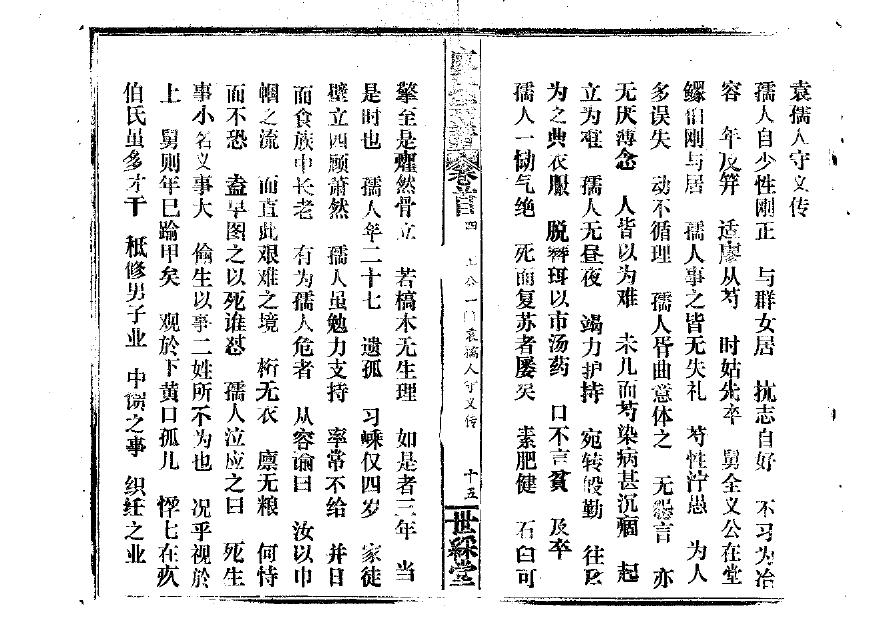 袁孺人守义传
孺人自少性刚正 与群女居 抗志自好 不习为冶
容 年及笄 适廖从芍 时姑先卒 舅全义公在堂
鳏怕刚与居 孺人事之皆无失礼 芍性泞愚 为人
多误失 动不循理 孺人胥曲意体之 无怨言 亦
无厌薄念 人皆以为难 未几而芍染病甚沉痼 起
立为难 孺人无昼夜 竭力护持 宛转殷勤 往
为之典衣服 脱簪珥以市汤药 口不言贫 及卒
孺人一恸气绝 死而复苏者屡矣 素肥健 石臼可
廖 卷首 四 上谷一门袁孺人守义传 十五 世綵堂
擎至是癯然骨立 若槁木无生理 如是者三年 当
是时也 孺人年二十七 遗孤 习嵊仅四岁 家徒
壁立四顾萧然 孺人虽勉力支持 率常不给 并日
而食族中长老 有为孺人危者 从容谕曰 汝以巾
帼之流 而直此艰难之境 桁无衣 廪无粮 何恃
而不恐 盍早图之以死谁怼 孺人泣应之曰 死生
事小名义事大 偷生以事二姓所不为也 况乎视於
上 舅则年已踰甲矣 观於下黄口孤儿 惸七在疚
伯氏虽多才干 秪修男子业 中馈之事 织纴之业